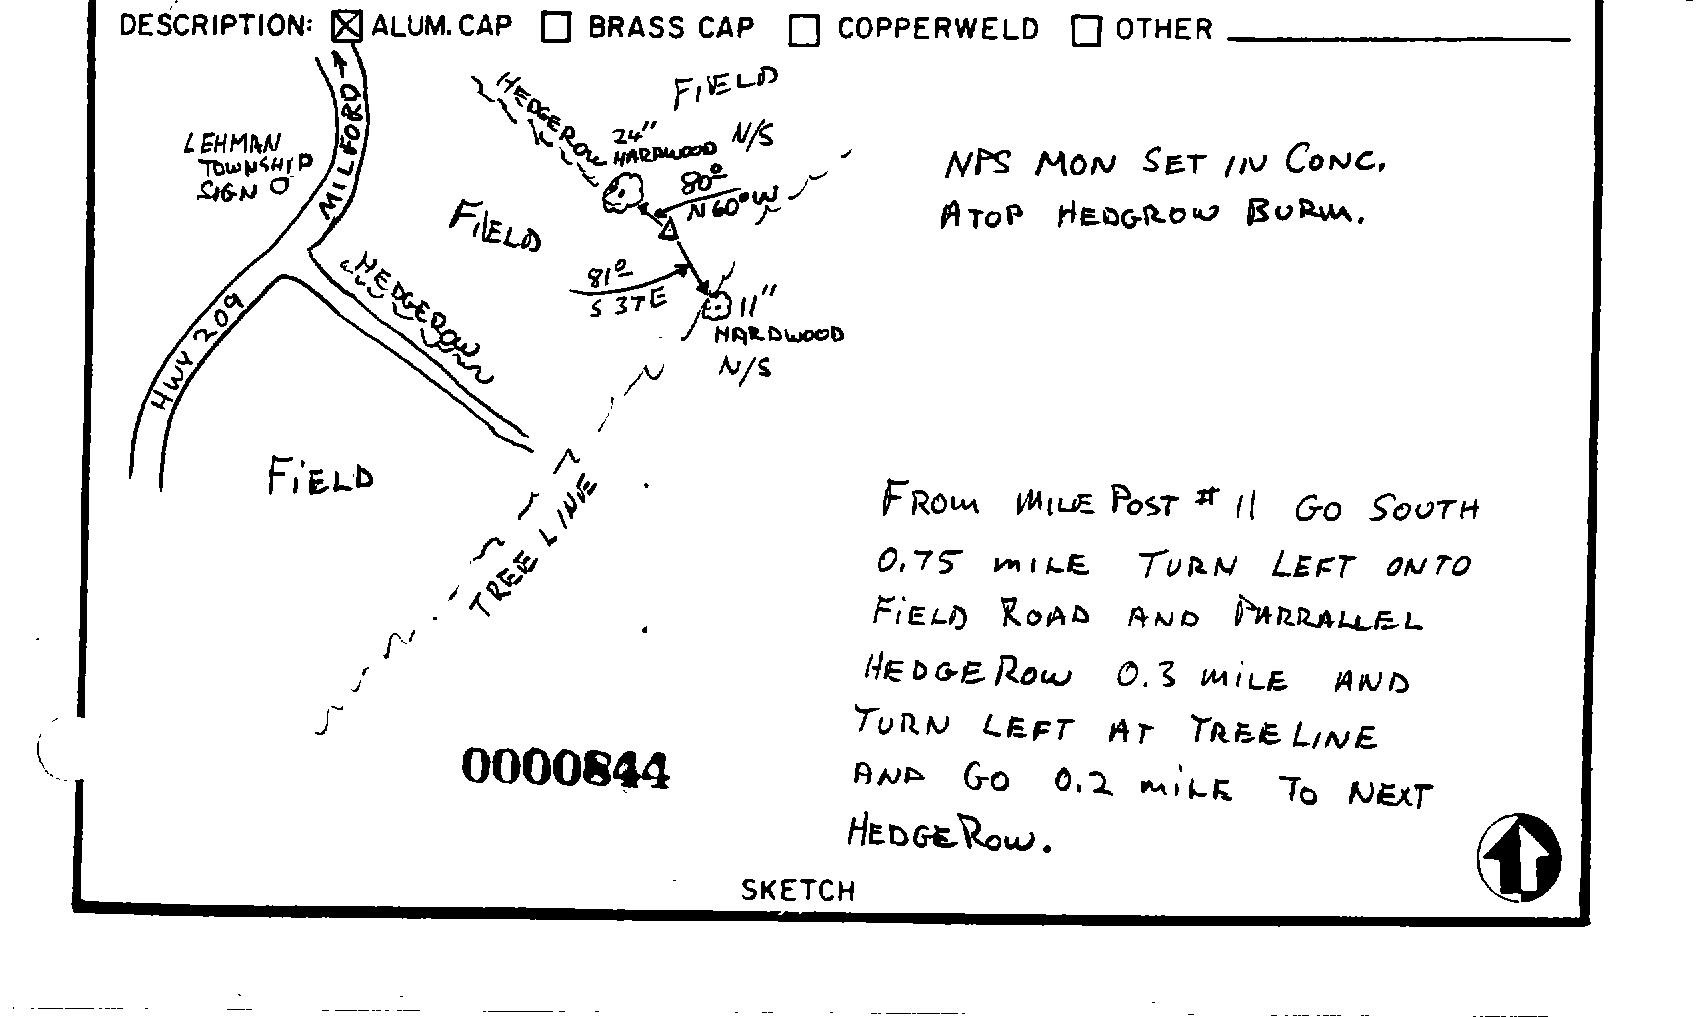 DESCRIPTION: ☒ ALUM. CAP ☐ BRASS CAP ☐ COPPERWELD ☐ OTHER
MILFORD
LEHMAN
TOWNSHIP
SIGN
HWY 209
HEDGEROW
FIELD
24"
HARDWOOD
N/S
80°
N60°W
FIELD
81°
S 37 E
11"
HARDWOOD
N/S
HEDGEROW
FIELD
TREE LINE
NPS MON SET IN CONC.
ATOP HEDGROW BURM.
FROM MILE POST # 11 GO SOUTH
0.75 MILE TURN LEFT ONTO
FIELD ROAD AND PARRALLEL
HEDGEROW 0.3 MILE AND
TURN LEFT AT TREELINE
AND GO 0.2 MILE TO NEXT
HEDGEROW.
0000844
SKETCH